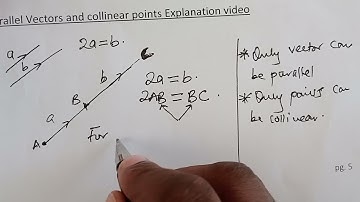 rallel Vectors and collinear points Explanation video
a
b
2a=b.
C
b
B
a
A
2a=b.
2AB=BC.
For
* Only vector can
be parallel
* Only points can
be collinear.
pg. 5